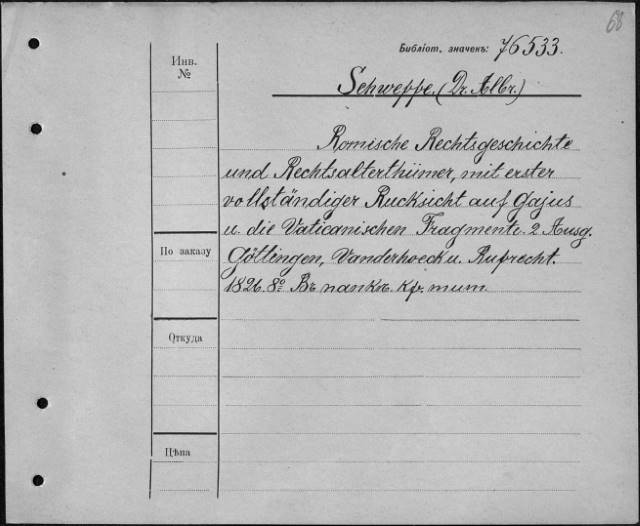 68
Библіот. значекъ: 76533.
Инв.
№
Schweppe. (Dr. Albr.)
Romische Rechtsgeschichte
und Rechtsalterthümer, mit erster
vollständiger Rucksicht auf Gajus
u. die Vaticanischen Fragmente. 2 Ausg.
По заказу
Göttingen, Vanderhoeck u. Ruprecht.
1826. 8º Въ папкѣ. кр. тит.
Откуда
Цѣна